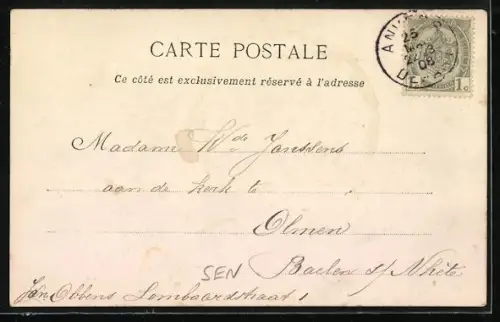 CARTE POSTALE
Ce côté est exclusivement réservé à l'adresse
Madame Wde Janssens
aan de kerk te
Olmen
Baelen s/ Nhète
SEN
Jan Obbens Lombaardstraat 1
25
08
1 c